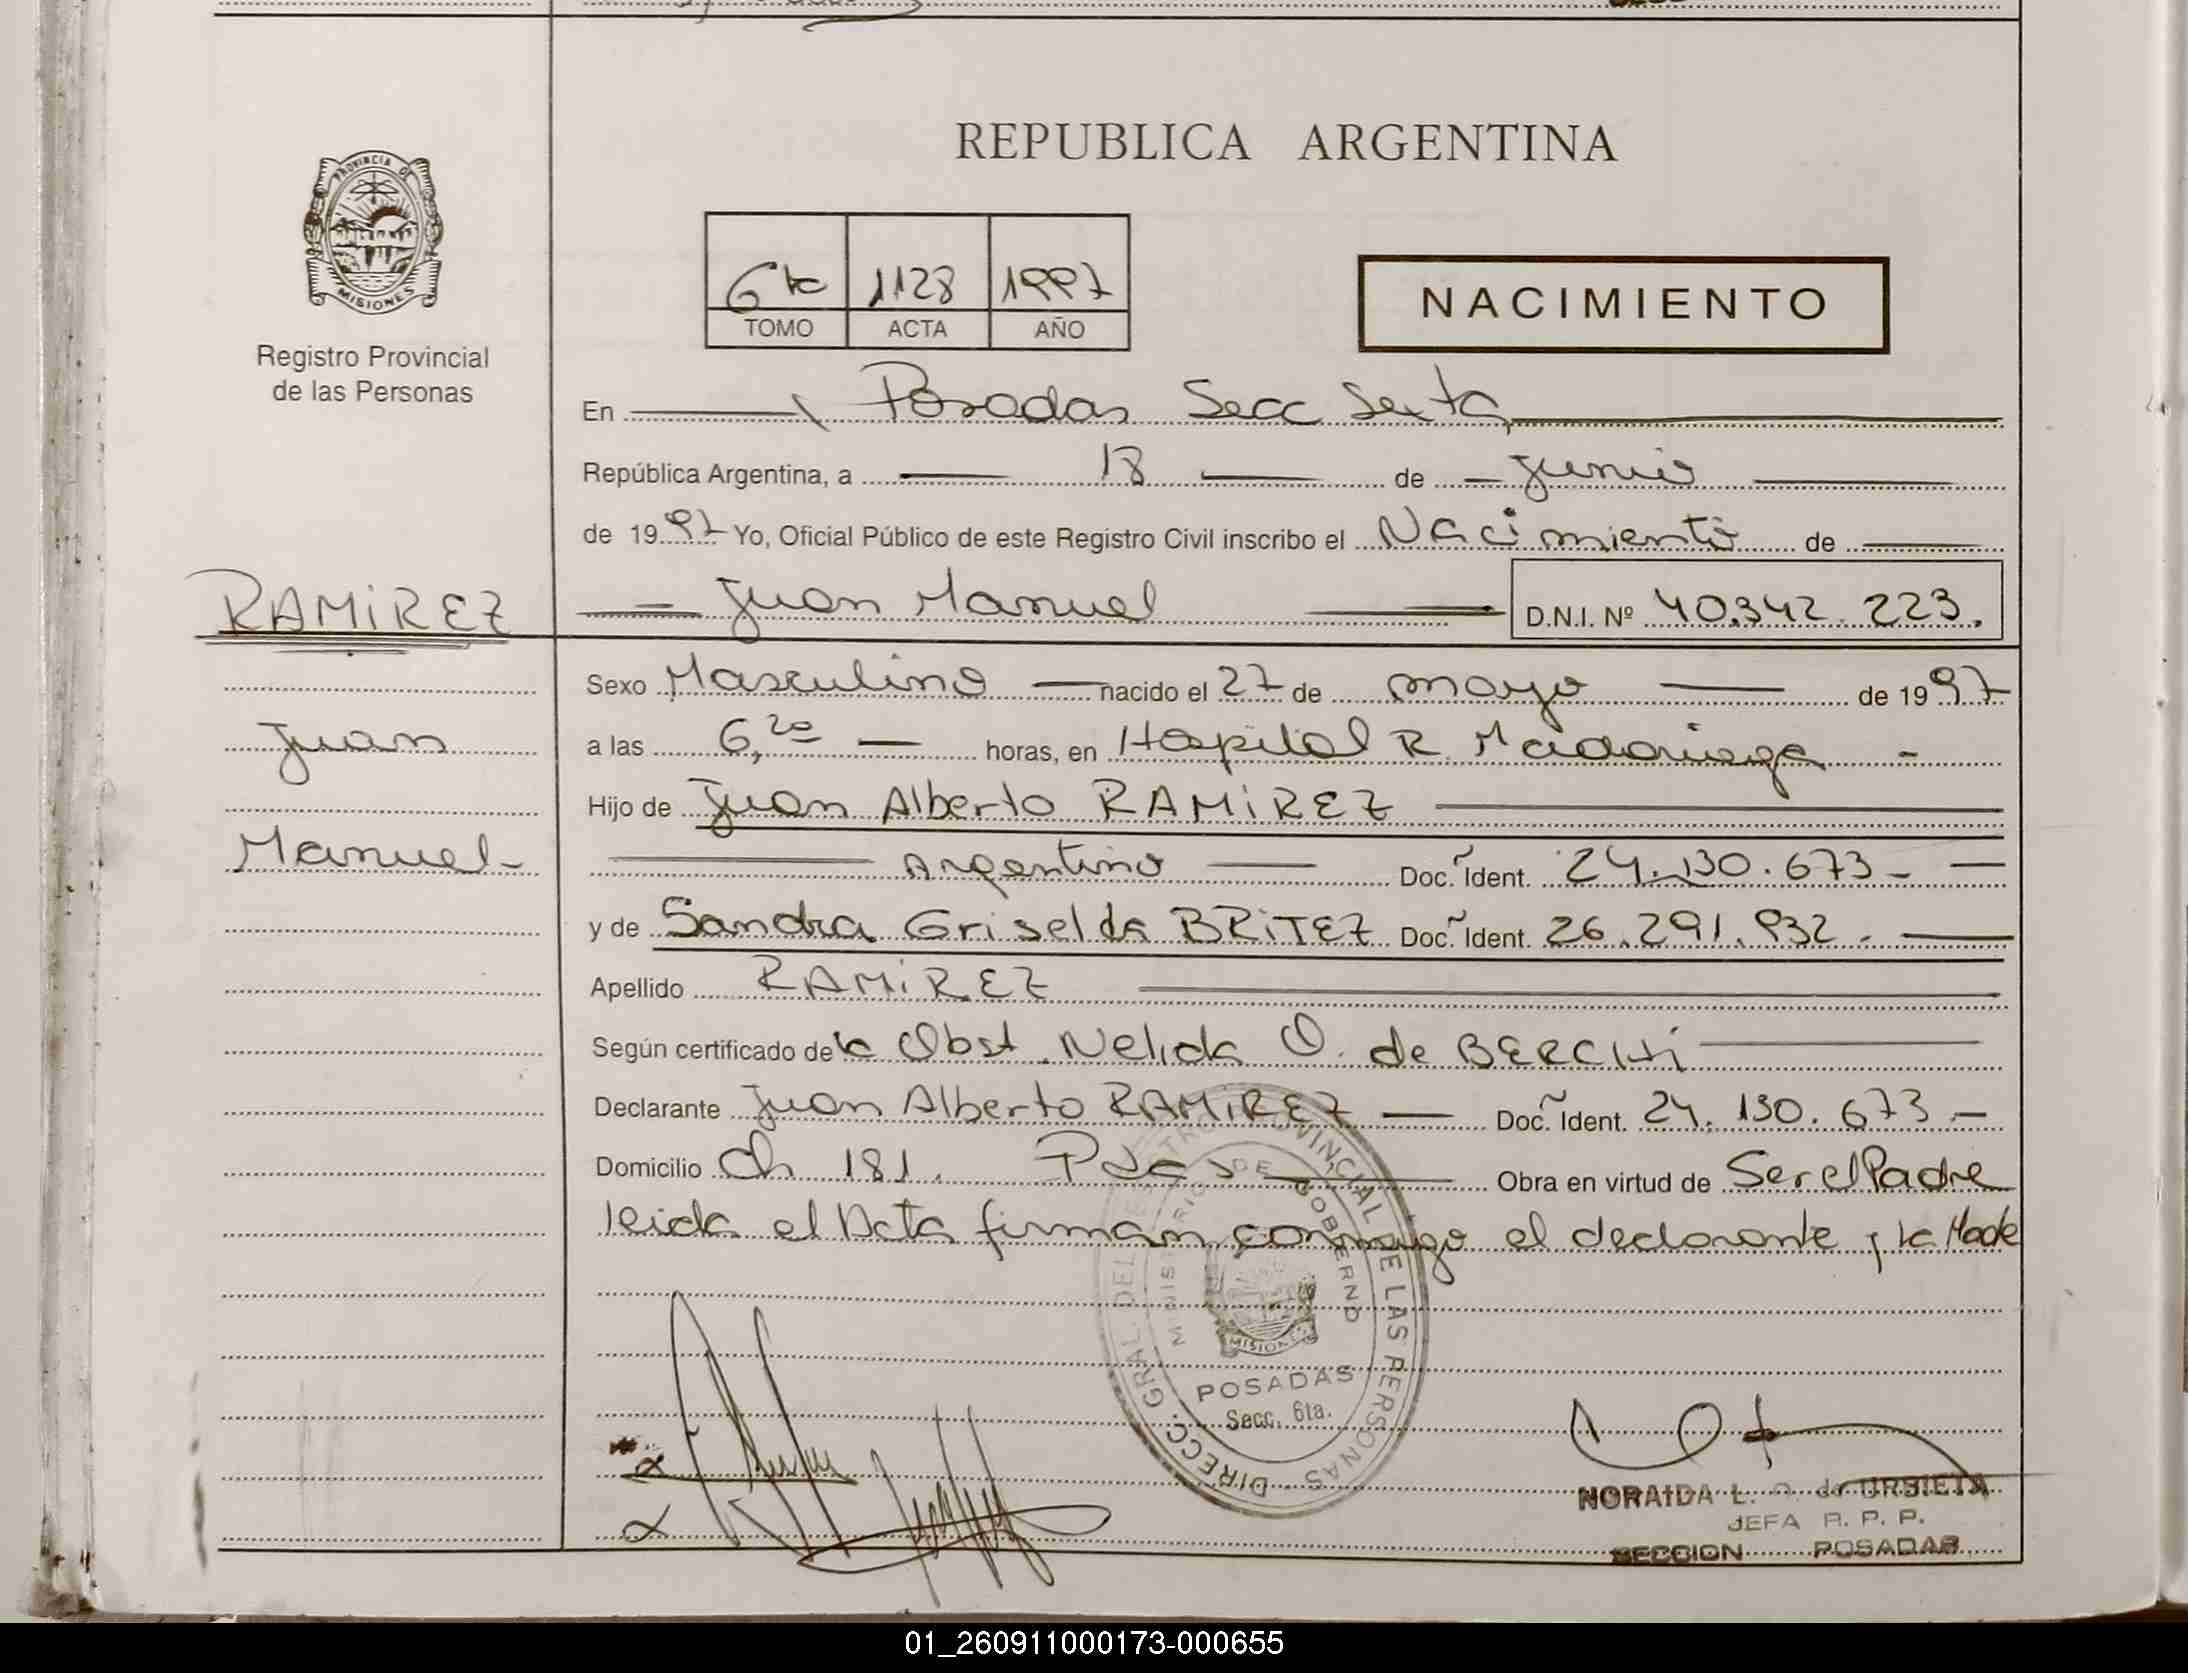 REPUBLICA ARGENTINA
PROVINCIA DE
MISIONES
Registro Provincial
de las Personas
6ta 1128 1997
TOMO ACTA AÑO
NACIMIENTO
En Posadas Secc Sexta
República Argentina, a 18 de junio
de 1997 Yo, Oficial Público de este Registro Civil inscribo el Nacimiento de
RAMIREZ
Juan Manuel D.N.I. Nº 40.342.223.
Sexo Masculino nacido el 27 de mayo de 1997
Juan
a las 6,20 horas, en Hospital R. Madariaga -
Hijo de Juan Alberto RAMIREZ
Manuel-
Argentino Doc. Ident. 24.130.673-
y de Sandra Griselda BRITEZ Doc. Ident. 26.291.932.
Apellido RAMIREZ
Según certificado de la Obst. Nelida O. de
Declarante Juan Alberto RAMIREZ Doc. Ident. 24.130.673-
Domicilio Ch 181. Pdas Obra en virtud de Ser el Padre
leida el Acta firman conmigo el declarante y la Madre
DIRECC. GRAL. DEL REGISTRO PROVINCIAL DE LAS PERSONAS
MINISTERIO DE GOBIERNO
MISIONES
POSADAS
Secc. 6ta.
NORAIDA L. de URBIETA
JEFA R. P. P.
SECCION POSADAS
01_260911000173-000655